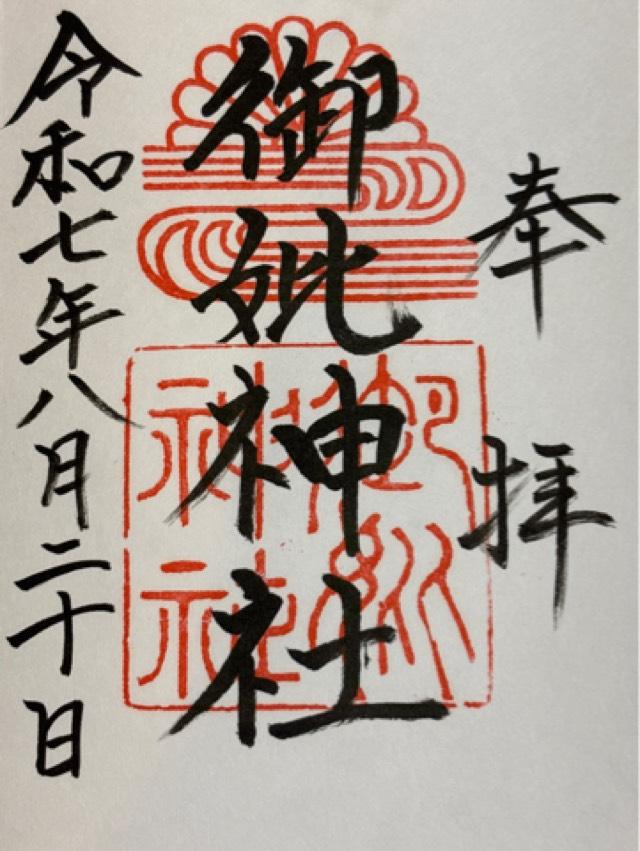 奉拝
御妣神社
御妣
神社
令和七年八月二十日